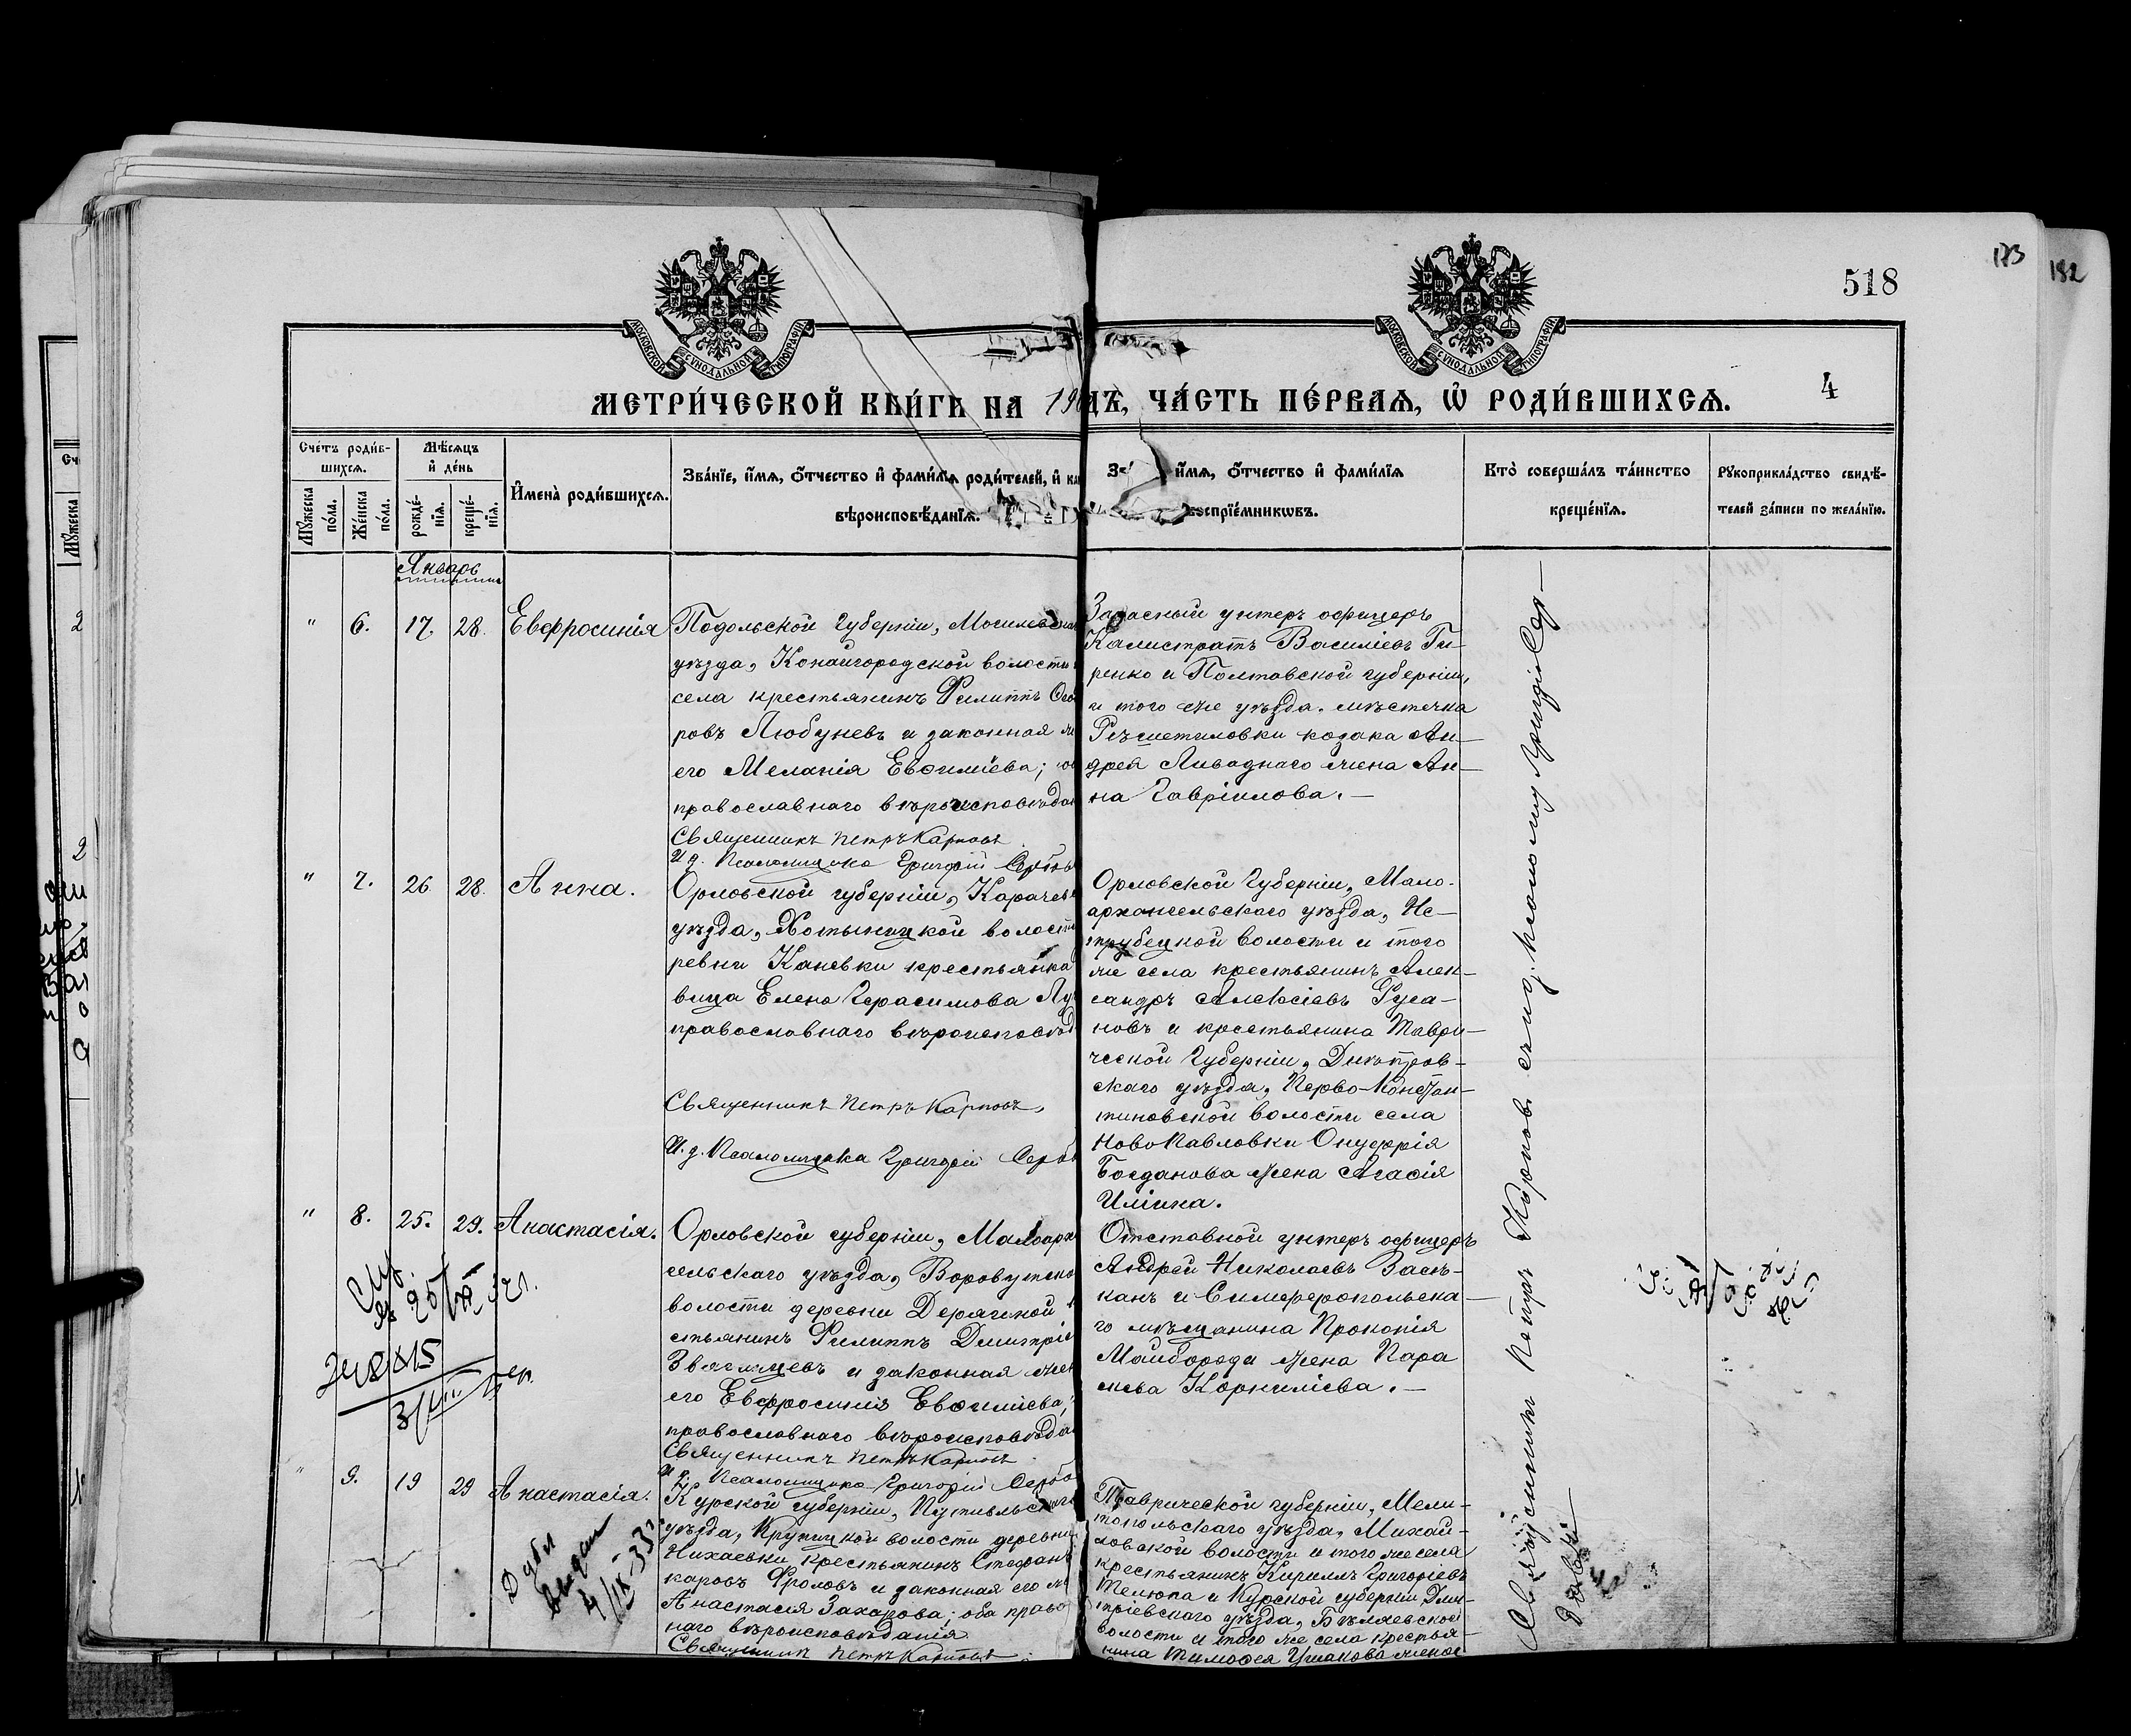 518
173
182
4
МОСКОВСКОЙ СѴНОДАЛЬНОЙ ТИПОГРАФІИ
МОСКОВСКОЙ СѴНОДАЛЬНОЙ ТИПОГРАФІИ
МЕТРИ́ЧЕСКОЙ КНИ́ГИ НА 190
ДЪ, ЧА́СТЬ ПЕ́РВАЯ, Ѡ РОДИ́ВШИХСЯ.
Сче́тъ роди́в-
шихся.
Мꙋжеска по́ла.
Же́нска по́ла.
Мѣ́сяцъ
и де́нь
рожде́-
нїя.
креще́-
нїя.
Имена̀ роди́вшихся.
Зва́нїе, и́мя, о́тчество и фами́лїя роди́телей, и ка
вѣроисповѣ́данїя.
и́мя, о́тчество и фами́лїя
воспрїе́мникѡвъ.
Кто̀ соверша́лъ та́инство
креще́нїя.
Рꙋкоприкла́дство свидѣ́-
телей за́писи по жела́нїю.
Январь
" 6. 17. 28. Евфросинія
Подольской губерніи, Могилевска
уѣзда, Копайгородской волости
села крестьянинъ Филиппъ Ѳео
ровъ Любуневъ и законная
его Меланія Евѳиміева;
православнаго вѣроисповѣдан
Священникъ Петръ Карповъ
И д. Псаломщика Григорій Сербы
Запасный унтеръ офицеръ
Калистратъ Василіевъ Ги-
ренко и Полтавской губерніи,
и того же уѣзда. мѣстечка
Рѣшетиловки козака Ан-
дрея Ливаднаго жена Ан-
на Гавріилова.—
" 7. 26 28. Анна.
Орловской губерніи, Карачев
уѣзда, Хотынецкой волости
ревни Каневки крестьянка
вица Елена Герасимова Лу
православнаго вѣроисповѣд
Священникъ Петръ Карповъ,
И. д. Псаломщика Григорій Серб
Орловской губерніи, Мало-
архангельскаго уѣзда, Ис-
трубецкой волости и того
же села крестьянинъ Алек-
сандръ Алексіевъ Руса-
новъ и крестьянина Таври-
ческой губерніи, Днѣпров-
скаго уѣзда, Перво-Констан-
тиновской волости села
Ново Павловки Онуфрія
Богданова жена Агафія
Иліина.
" 8. 25. 29. Анастасія.
Орловской губерніи, Малоарх
гельскаго уѣзда,
волости деревни
стьянинъ Филиппъ Димитріе
Звягинцевъ и законная жен
его Евфросинія Евѳиміева;
православнаго вѣроисповѣда
Священникъ Петръ Карповъ
И д. Псаломщика Григорій Сербо
Отставной унтеръ офицеръ
Андрей Николаевъ Засѣ-
канъ и Симферопольска-
го мѣщанина Прокопія
Майбороды жена Пара
скева Корниліева.—
" 9. 19 29 Анастасія.
Дубл
выдан
4/IX-33
Курской губерніи, Путивльскаго
уѣзда, Крупецкой волости деревни
крестьянинъ Стефанъ
каровъ Фроловъ и законная его
Анастасія Захарова; оба право
наго вѣроисповѣданія
Священникъ Петръ Карповъ
Таврической губерніи, Мели-
топольскаго уѣзда, Михай-
ловской волости и того же села
крестьянинъ Кириллъ Григорьевъ
Телюпа и Курской губерніи Дми-
тріевскаго уѣзда, Бѣляевской
волости и того же села крестья-
нина Тимоѳея Ушакова жена
Священникъ Петръ Карповъ съ и д. псаломщ Григоріи Сер-